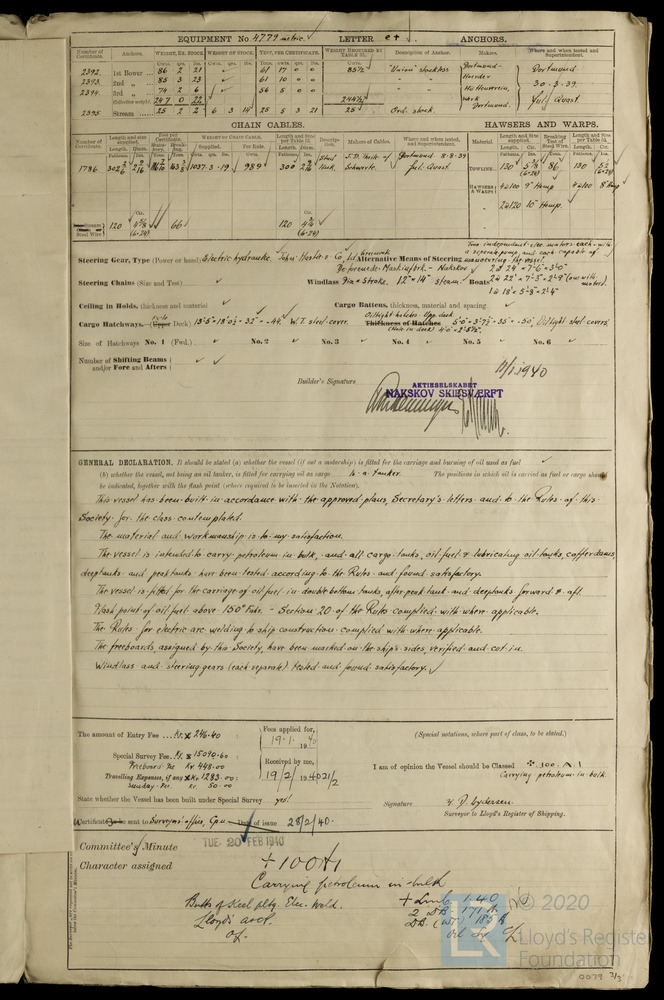 EQUIPMENT No. 4779 metric. LETTER e+ ANCHORS.
Number of Certificate. Anchors. WEIGHT, EX. STOCK. WEIGHT OF STOCK. TEST, PER CERTIFICATE. WEIGHT REQUIRED BY TABLE 31. Description of Anchor. Makers. Where and when tested and Superintendent.
2392. 1st Bower 86 2 21 61 17 0 0 85½ "Union" stockless Dortmund- Dortmund
2393. 2nd " 85 3 23 61 10 0 0 Hoerder- 30-3-39.
2394. 3rd " 74 2 6 56 5 0 0 Hüttenverein, Jul. Quast.
Collective weight. 247 0 22 244½ Dortmund.
2395 Stream 25 2 2 6 3 14 25 5 3 21 25 Ord. stock.
CHAIN CABLES. HAWSERS AND WARPS.
Number of Certificate. Length and size supplied. Test per Certificate. WEIGHT OF CHAIN CABLE. Length and Size per Table 31. Description. Makers of Cables. Where and when tested, and Superintendent. Material. Length and Size supplied. Breaking Test of Steel Wire. Length and Size per Table 31.
1786 1037-3-19. 989 300 Stud J.D. Theile Dortmund 8-8-39 TOWLINE 130 5⅜ 86 130 5½
Schwerte. Jul. Quast. (6-24) (6-24)
HAWSERS & WARPS 4 à 100 9" Hemp 4 à 100 8" Hemp
2 à 120 10" Hemp.
Stream Steel Wire 120 4⅝ (6-24) 66 120 (6-24)
Two independent elec. motors each with a separate pump, and each capable of manoeuvring the vessel.
Steering Gear, Type (Power or hand) Electric hydraulic. John Hastie & Co Ld Greenock Alternative Means of Steering
De forenede Maskinfbrk. - Nakskov 2 à 24' × 7'-6" × 3'-0"
Steering Chains (Size and Test) Windlass 9in × Stroke. 12" × 14" steam. Boats 2 à 22' × 7'-5" × 2'-9" (one with motor).
1 à 18' × 5'-8" × 2'-4"
Ceiling in Holds, thickness and material Cargo Battens, thickness, material and spacing
Oiltight hatches Upp. deck
Cargo Hatchways. (Upper Deck) W.T. steel-cover. Thickness of Hatches Oiltight steel covers.
Size of Hatchways No. 1 (Fwd.) No. 2 No. 3 No. 4 No. 5 No. 6
Number of Shifting Beams and/or Fore and Afters
11/1 1940
Builder's Signature AKTIESELSKABET
NAKSKOV SKIBSVÆRFT
GENERAL DECLARATION. It should be stated (a) whether the vessel (if not a motorship) is fitted for the carriage and burning of oil used as fuel
(b) whether the vessel, not being an oil tanker, is fitted for carrying oil as cargo is a tanker. The positions in which oil is carried as fuel or cargo should
be indicated, together with the flash point (where required to be inserted in the Notation).
This vessel has been built in accordance with the approved plans, Secretary's letters and to the Rules of this
Society for the class contemplated.
The material and workmanship is to my satisfaction.
The vessel is intended to carry petroleum in bulk, and all cargo tanks, oil fuel & lubricating oil tanks, cofferdams,
deeptanks and peaktanks have been tested according to the Rules and found satisfactory.
The vessel is fitted for the carriage of oil fuel in double bottom tanks, after peak tank and deeptanks forward & aft.
Flash point of oil fuel above 150° Fahr. - Section 20 of the Rules complied with where applicable.
The Rules for electric arc welding to ship construction complied with where applicable.
The freeboards, assigned by this Society, have been marked on the ship's sides, verified and cut in.
Windlass and steering gears (each separate) tested and found satisfactory.
The amount of Entry Fee Kr. 246.40 Fees applied for, (Special notations, where part of class, to be stated.)
19.1.1940
Special Survey Fee Kr. 15090.60
Freeboard Fee Kr. 448.00 Received by me, I am of opinion the Vessel should be Classed + 100 A1
Travelling Expenses, if any Kr. 1283.00 19/2/1940 21/2 Carrying petroleum in bulk
Sunday Fee Kr. 50.00
State whether the Vessel has been built under Special Survey yes! Signature
Surveyor to Lloyd's Register of Shipping.
Certificate to be sent to Surveyors office, Cpn. Date of issue 28/2/40.
Committee's Minute TUE. 20 FEB 1940
Character assigned + 100 A1
Carrying petroleum in bulk
Butts of Steel pltg. Elec. Weld. + LMC 1.40
Lloyd's A&CP. 2 DB. 171 lb
DB. (WT) 185 lb
© 2020
Lloyd's Register
Foundation
0079 3/3